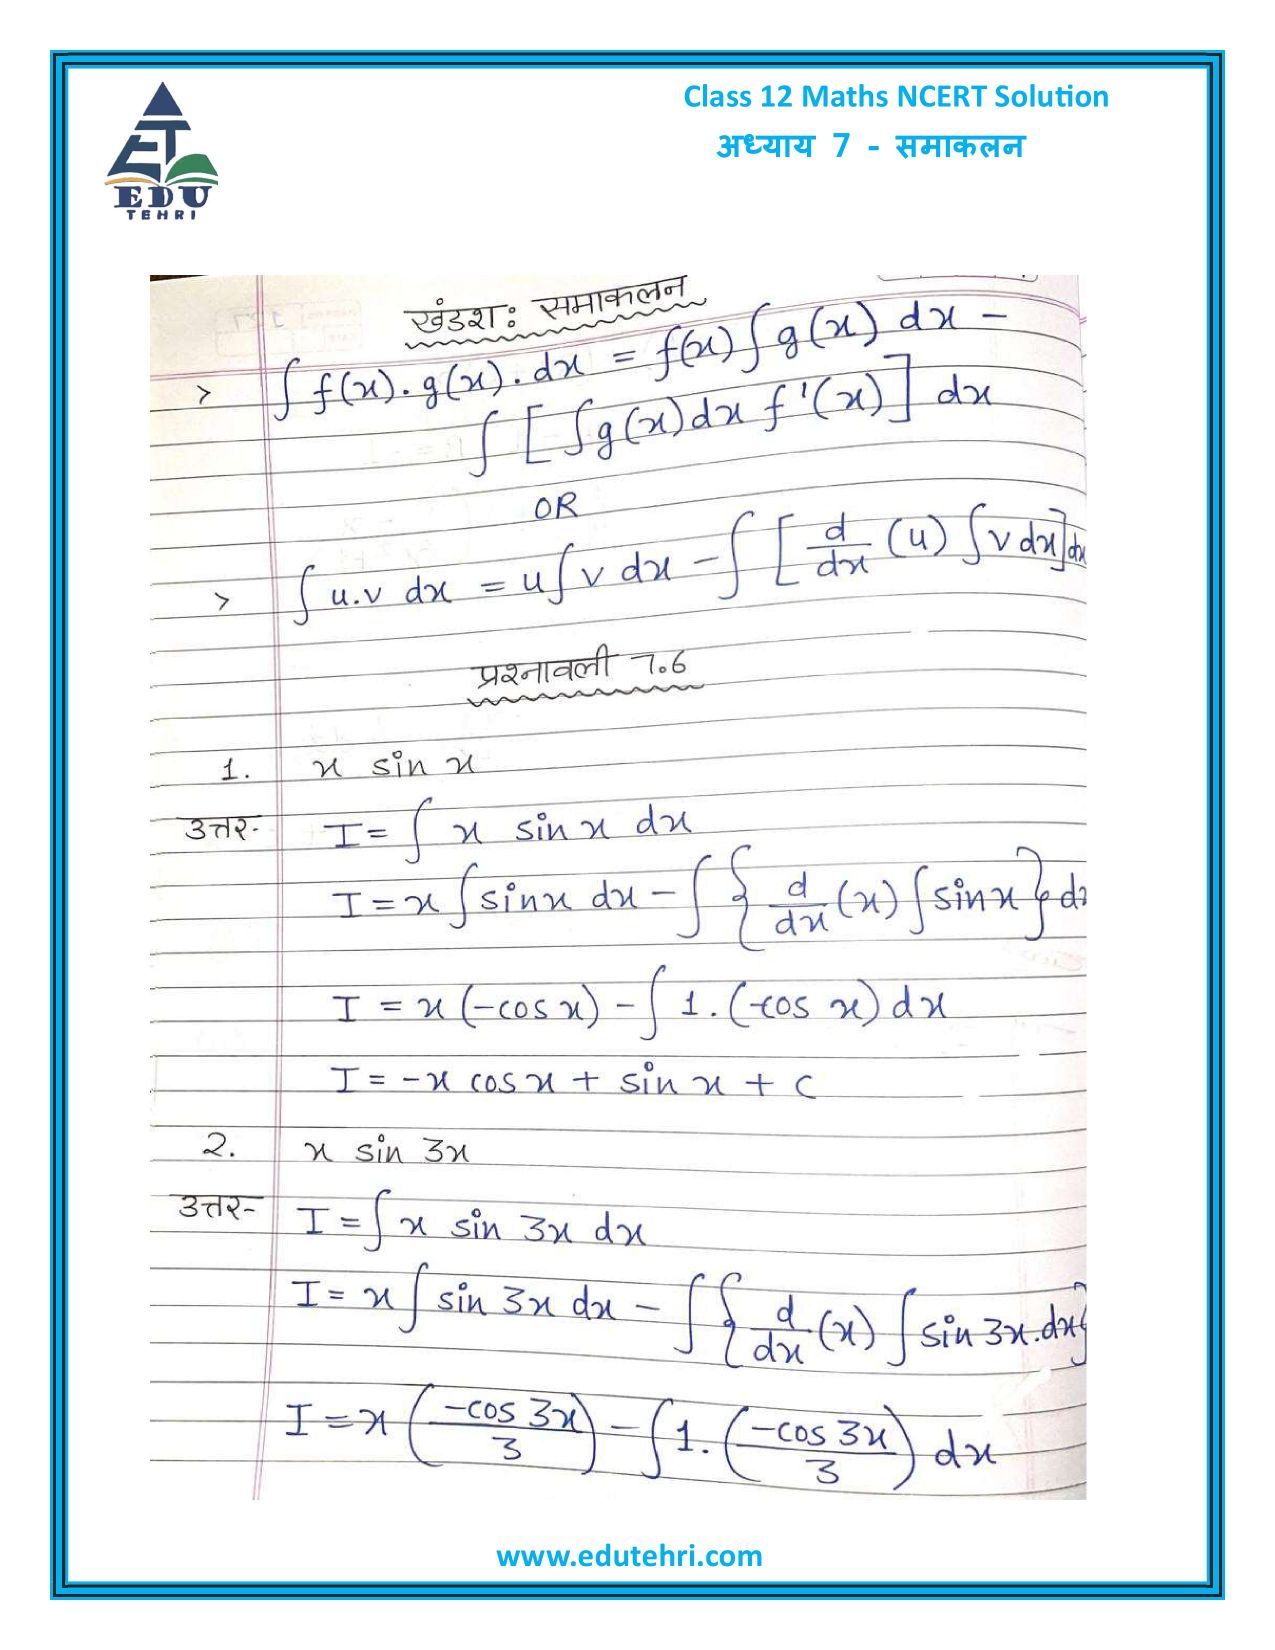 Class 12 Maths NCERT Solution
अध्याय 7 - समाकलन
ET
EDU
TEHRI
खंडशः समाकलन
> ∫ f(x).g(x).dx = f(x)∫g(x) dx -
∫ [∫g(x)dx f'(x)] dx
OR
> ∫ u.v dx = u∫v dx - ∫ [d/dx (u) ∫v dx]dx
प्रश्नावली 7.6
1. x sin x
उत्तर- I = ∫ x sin x dx
I = x ∫sinx dx - ∫ { d/dx (x) ∫sinx } dx
I = x (-cos x) - ∫ 1. (-cos x) dx
I = -x cos x + sin x + c
2. x sin 3x
उत्तर- I = ∫ x sin 3x dx
I = x ∫ sin 3x dx - ∫ { d/dx (x) ∫ sin 3x.dx }
I = x (-cos 3x/3) - ∫ 1. (-cos 3x/3) dx
www.edutehri.com